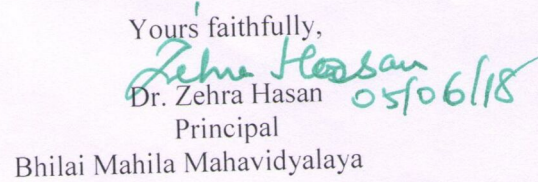 Yours faithfully,
Zehra Hassan
Dr. Zehra Hasan 05/06/18
Principal
Bhilai Mahila Mahavidyalaya